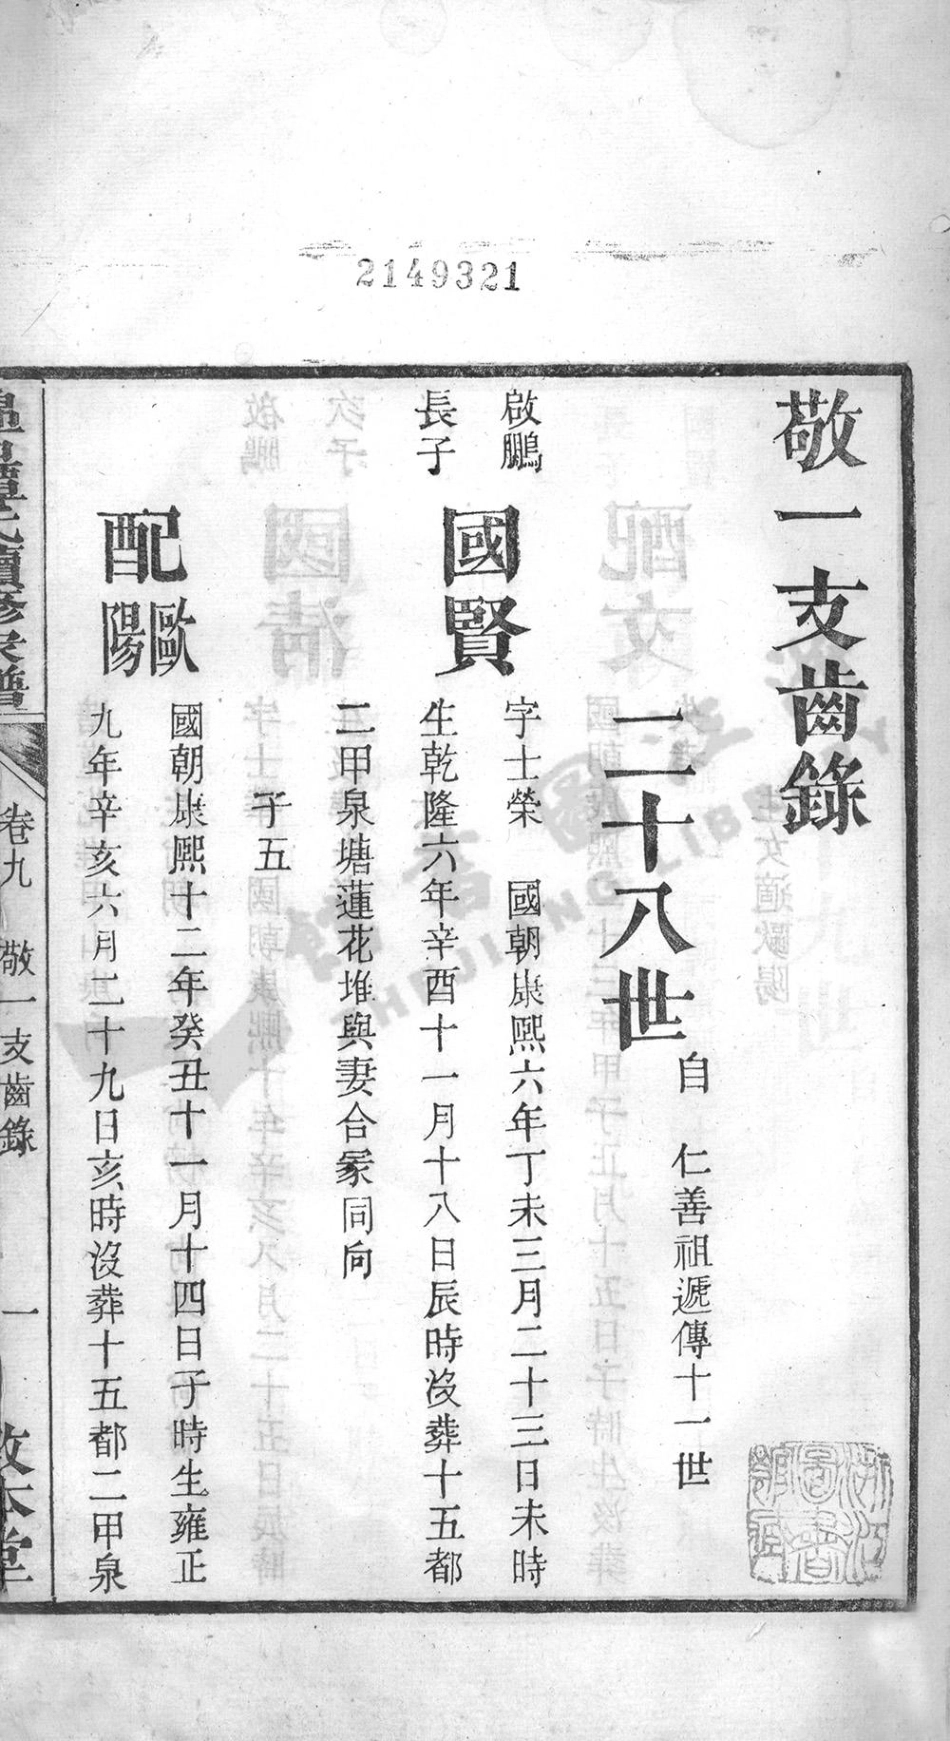 2149321
敬一支齒錄
二十八世
自　仁善祖遞傳十一世
啟鵬
長子
國賢
字士榮　國朝康熙六年丁未三月二十三日未時
生乾隆六年辛酉十一月十八日辰時沒葬十五都
二甲泉塘蓮花堆與妻合冢同向
子五
配歐陽
國朝康熙十二年癸丑十一月十四日子時生雍正
九年辛亥六月二十九日亥時沒葬十五都二甲泉
氏續修家譜
卷九
敬一支齒錄
一
敦本堂
浙江圖書館
ZHEJIANG LIBRARY